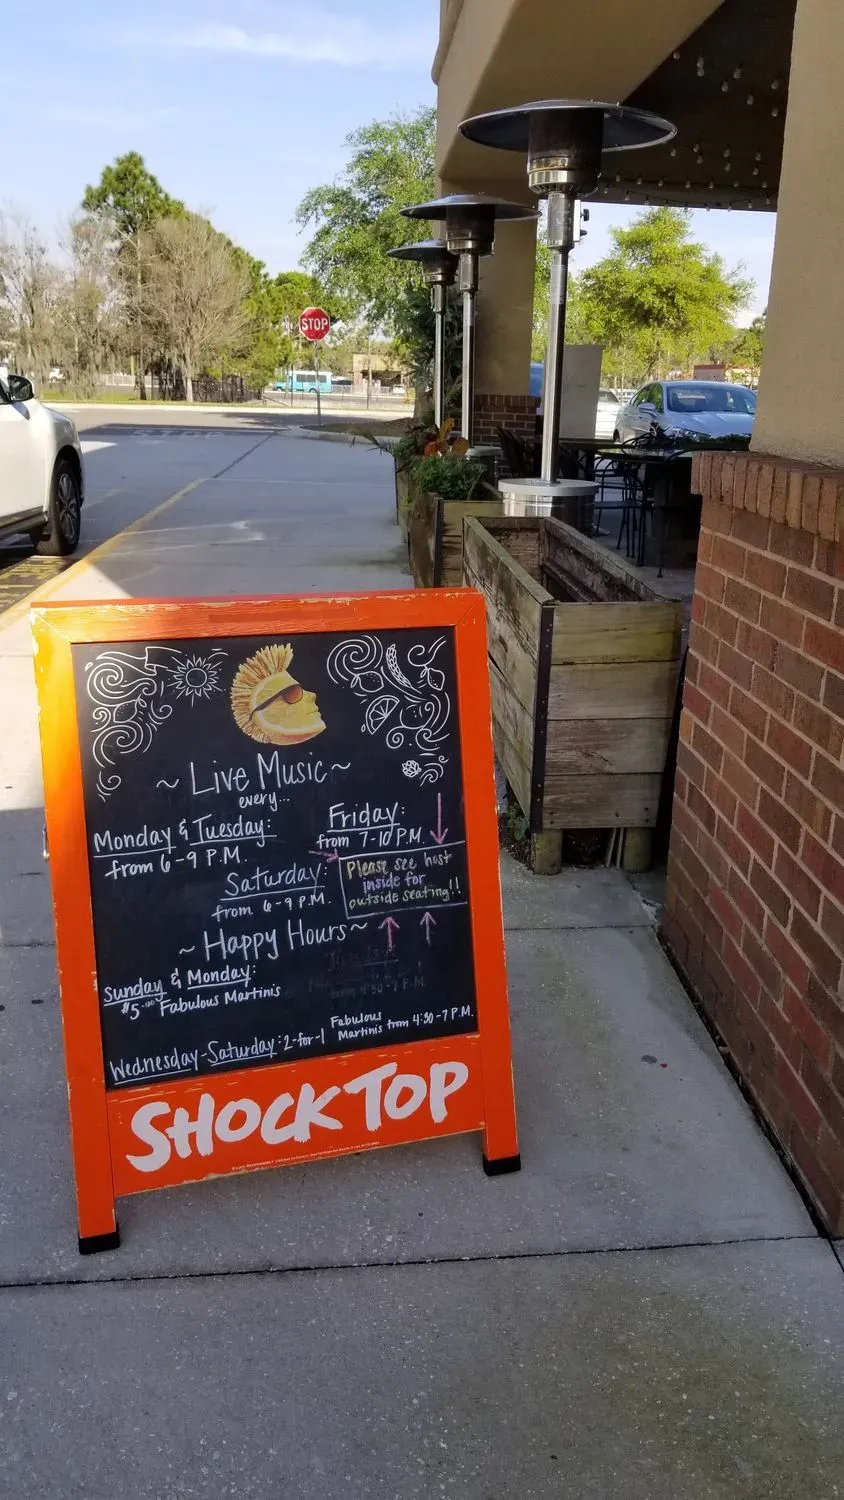 STOP
~ Live Music ~
every...
Monday & Tuesday:
from 6-9 P.M.
Friday:
from 7-10 P.M.
Saturday:
from 6-9 P.M.
Please see host
inside for
outside seating!!
~ Happy Hours ~
Sunday & Monday:
$5.00 Fabulous Martinis
Wednesday-Saturday: 2-for-1 Fabulous
Martinis from 4:30-7 P.M.
SHOCK TOP